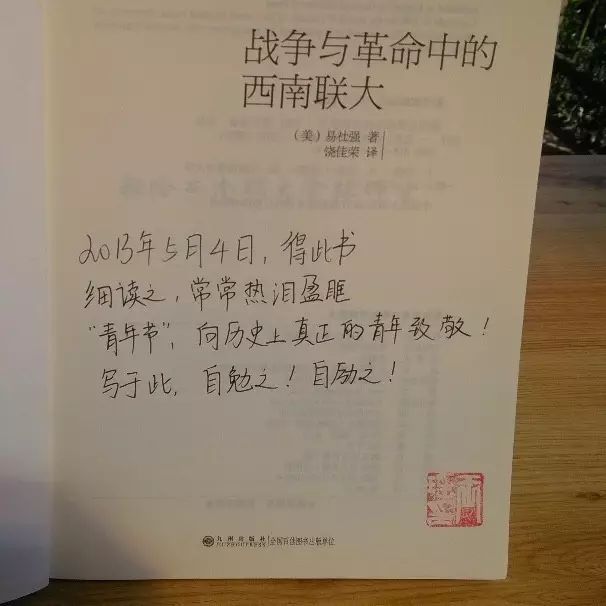 战争与革命中的
西南联大
（美）易社强 著
饶佳荣 译
2013年5月4日，得此书
细读之，常常热泪盈眶
“青年节”，向历史上真正的青年致敬！
写于此，自勉之！自励之！
九州出版社
JIUZHOUPRESS
全国百佳图书出版单位